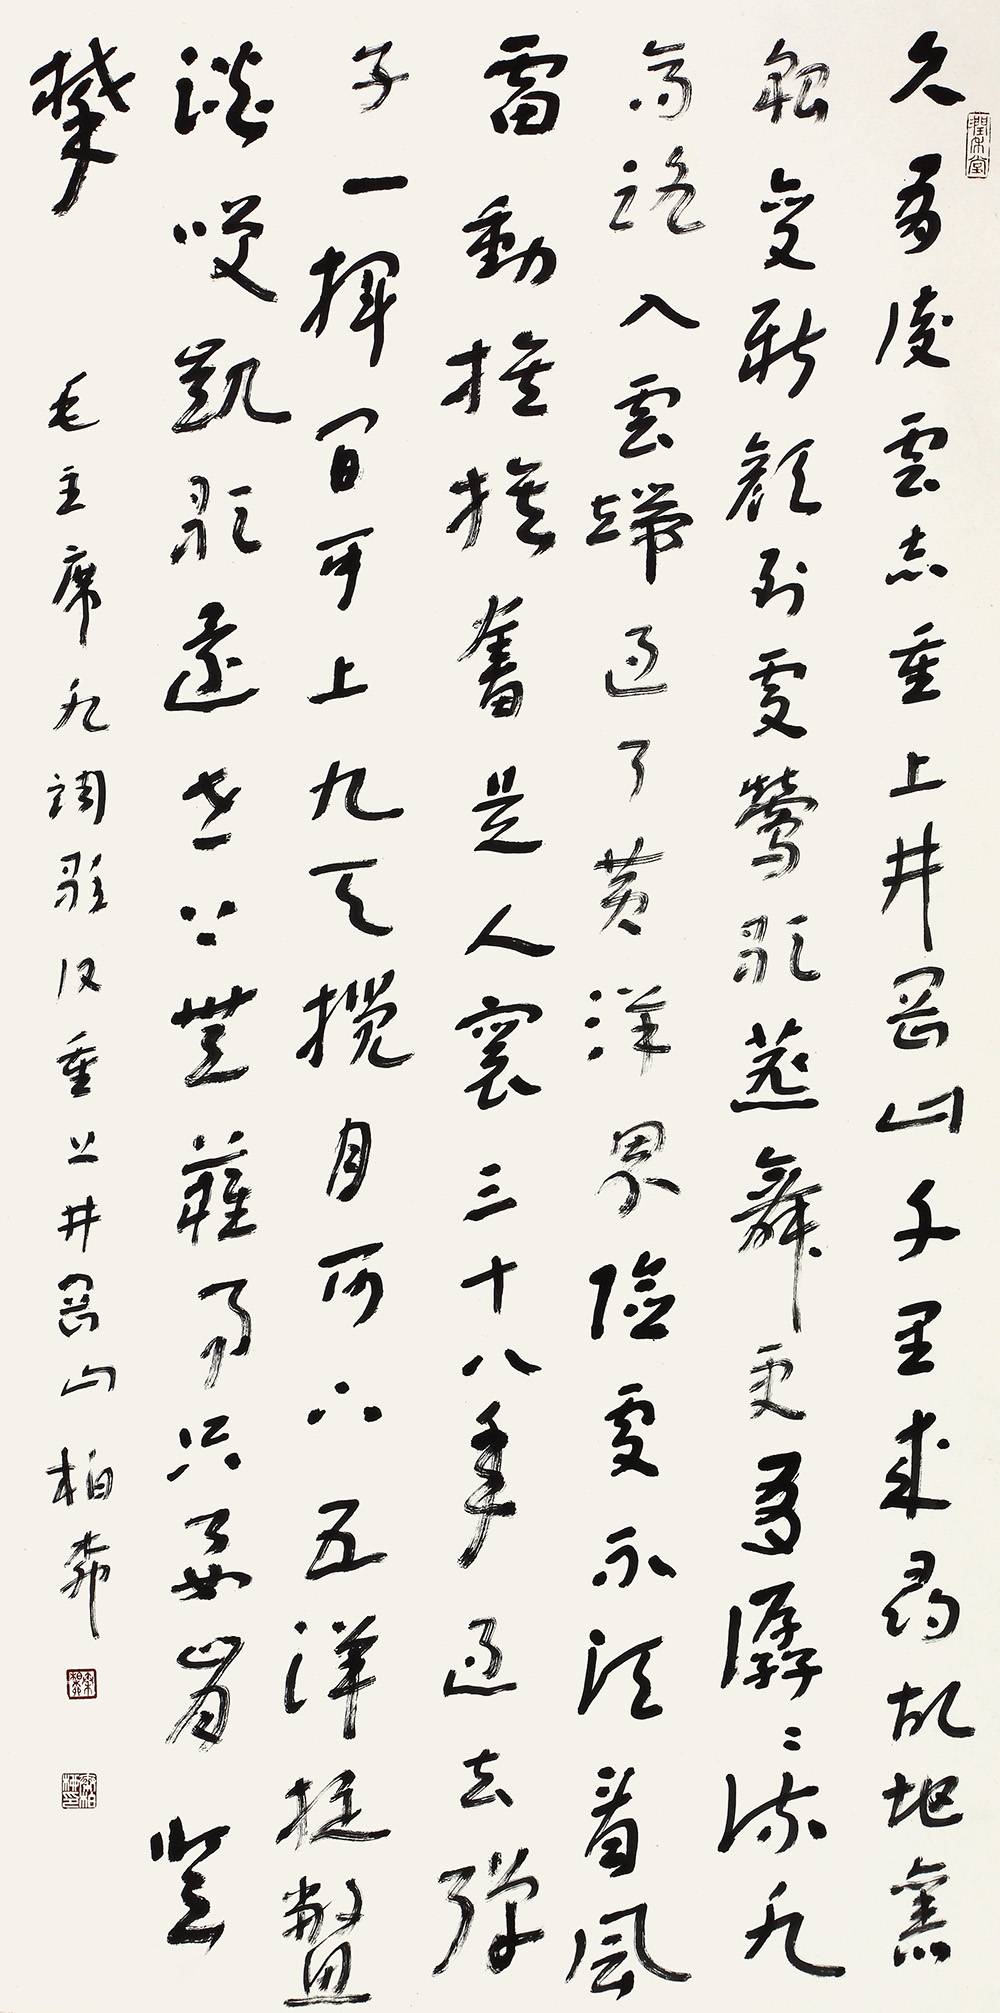 潤禾堂
久有凌雲志重上井岡山千里來尋故地舊
貌變新顏到處鶯歌燕舞更有潺〻流水
高路入雲端過了黃洋界險處不須看風
雷動旌旗奮是人寰三十八年過去彈
子一揮間可上九天攬月可下五洋捉鱉
談笑凱歌還世上無難事只要肯登
攀
毛主席水調歌頭重上井岡山 柏